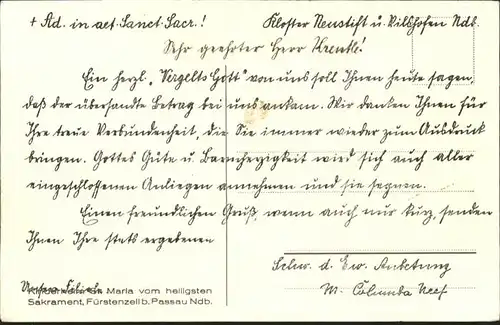 + Ad. in aet. Sanct. Sacr.!
Kloster Neustift ü. Vilshofen Ndb.
Sehr geehrter Herr Krentle!
Ein herzl. „Vergelts Gott" von uns soll Ihnen heute sagen,
daß der übersandte Betrag bei uns ankam. Wir danken Ihnen für
Ihre treue Verbundenheit, die Sie immer wieder zum Ausdruck
bringen. Gottes Güte u. Barmherzigkeit wird sich auch aller
eingeschlossenen Anliegen annehmen und sie segnen.
Einen freundlichen Gruß, wenn auch nur kurz, senden
Ihnen Ihre stets ergebenen
Schw. d. Ew. Anbetung
M. Columba Neef
St. Maria vom heiligsten
Sakrament, Fürstenzell b. Passau Ndb.